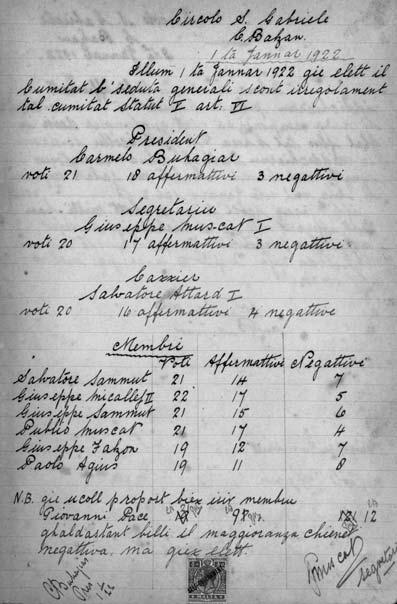 Circolo S. Gabriele
C. Balzan.
1 ta Jannar 1922
Illum 1 ta Jannar 1922 gie elett il
Cumitat b'seduta generali scont irregolament
tal cumitat Statut I art: VI
President
Carmelo Buhagiar
voti 21 18 affermattivi 3 negattivi
Segretariu
Giuseppe Muscat I
voti 20 17 affermattivi 3 negattivi
Caxxier
Salvatore Attard I
voti 20 16 affermattivi 4 negattivi
Membri
Voti Affermattivi Negattivi
Salvatore Sammut 21 14 7
Giuseppe Micallef II 22 17 5
Giuseppe Sammut 21 15 6
Publio Muscat 21 17 4
Giuseppe Falzon 19 12 7
Paolo Agius 19 11 8
N.B. gie ucoll propost biex icun membru
Giovanni Pace 9 12
ghaldastant billi il maggioranza chienet
negattiva, ma giex elett.
C Buhagiar
Pres
1-1-22
P Muscat
Segretariu
MALTA